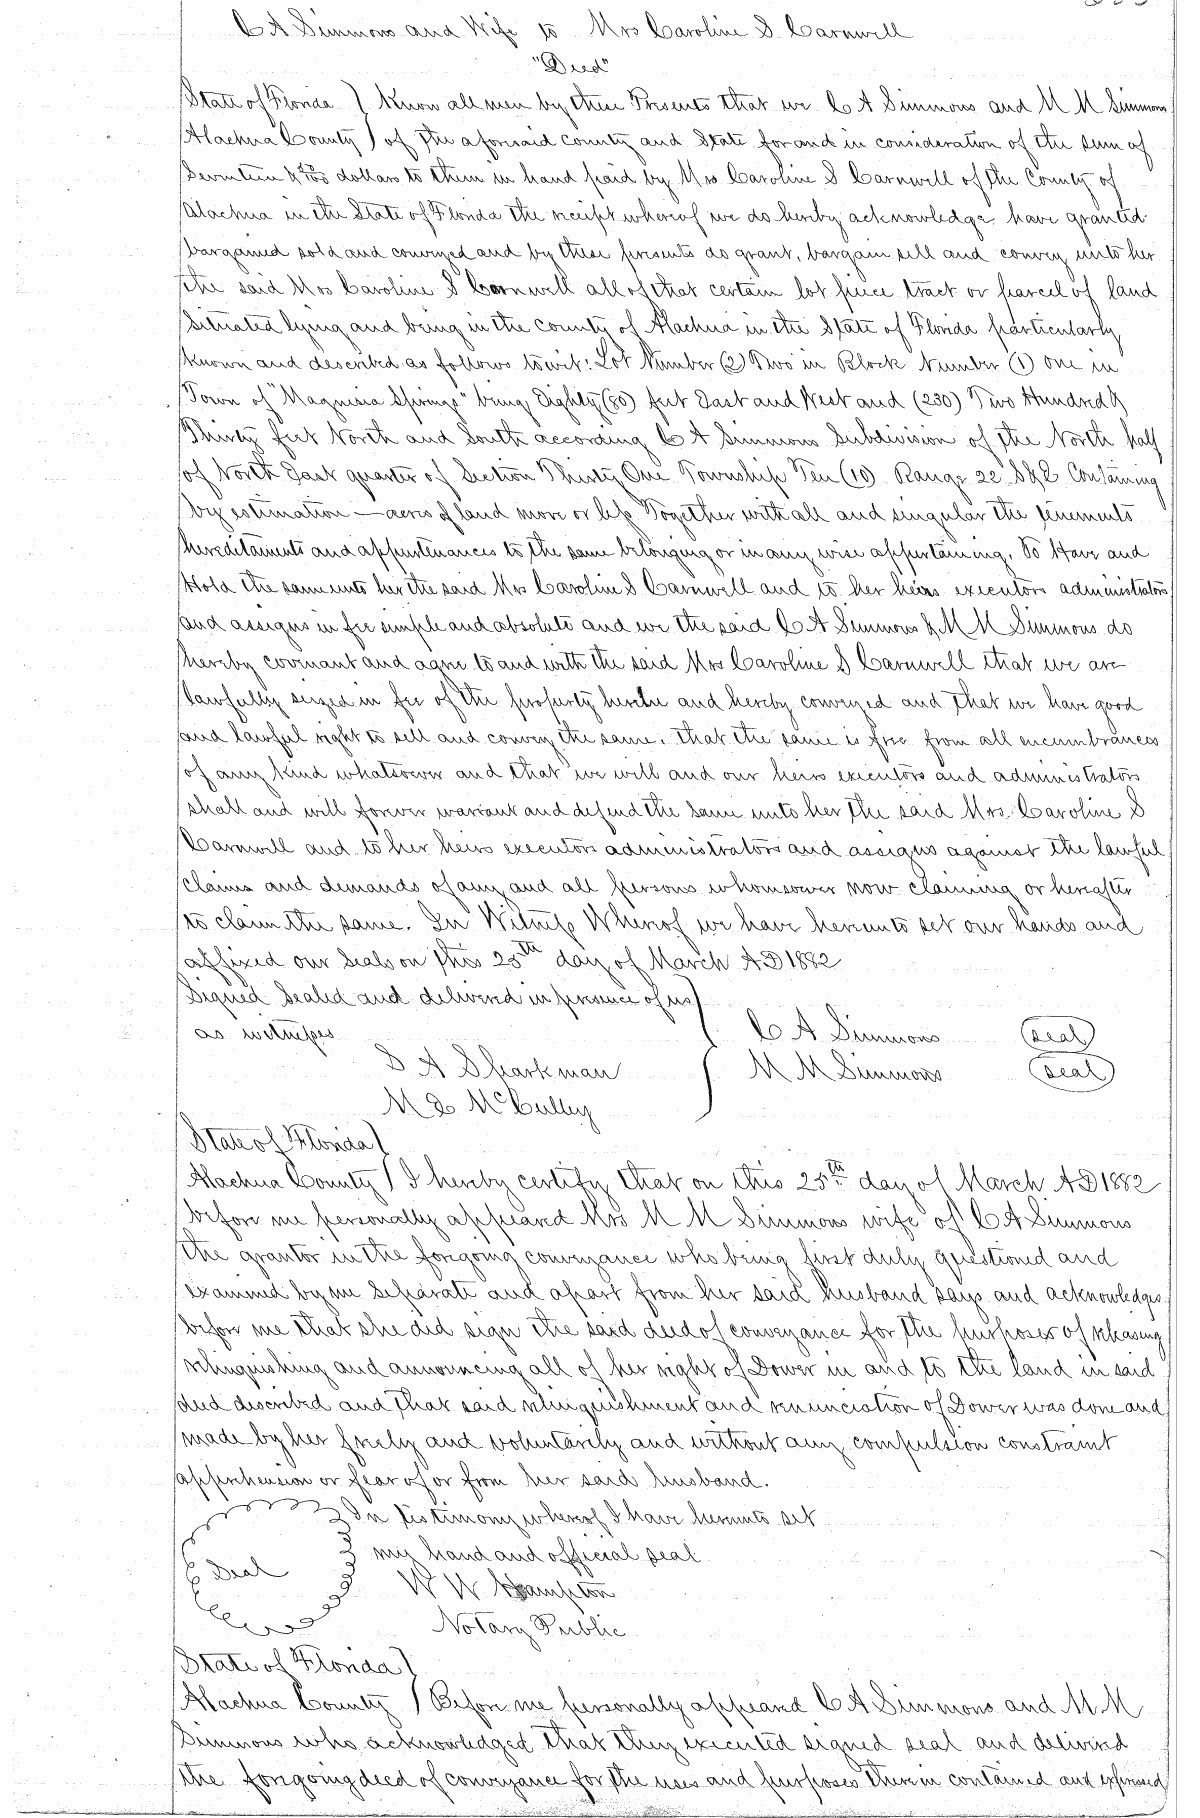 C A Simmons and Wife to Mrs Caroline S. Carnwell
"Deed"
State of Florida } Know all men by these Presents that we C A Simmons and M M Simmons
Alachua County } of the aforesaid county and State for and in consideration of the sum of
Seventeen & dollars to them in hand paid by Mrs Caroline S Carnwell of the County of
Alachua in the State of Florida the receipt whereof we do hereby acknowledge, have granted
bargained sold and conveyed and by these presents do grant, bargain sell and convey unto her
the said Mrs Caroline S Carnwell all of that certain lot piece tract or parcel of land
Situated lying and being in the county of Alachua in the State of Florida particularly
known and described as follows to wit: Lot Number (2) Two in Block Number (1) one in
Town of "Magnesia Springs" being Eighty (80) feet East and West and (230) Two Hundred &
Thirty feet North and South according C A Simmons Subdivision of the North half
of North East quarter of Section Thirty One Township Ten (10) Range 22 S & E Containing
by estimation — acres of land more or less Together with all and singular the tenements
hereditaments and appurtenances to the same belonging or in any wise appertaining. To Have and
Hold the same unto her the said Mrs Caroline S Carnwell and to her heirs executors administrators
and assigns in fee simple and absolute and we the said C A Simmons & M M Simmons do
hereby covenant and agree to and with the said Mrs Caroline S Carnwell that we are
lawfully seized in fee of the property herein and hereby conveyed and that we have good
and lawful right to sell and convey the same. that the same is free from all encumbrances
of any kind whatsoever and that we will and our heirs executors and administrators
shall and will forever warrant and defend the same unto her the said Mrs. Caroline S
Carnwell and to her heirs executors administrators and assigns against the lawful
claims and demands of any and all persons whomsoever now claiming or hereafter
to claim the same. In Witness Whereof we have hereunto set our hands and
affixed our Seals on this 25th day of March A D 1882
Signed Sealed and delivered in presence of us }
as witnesses C A Simmons (seal)
S A Sparkman } M M Simmons (seal)
M E McCulley
State of Florida }
Alachua County } I hereby certify that on this 25th day of March A D 1882
before me personally appeared Mrs M M Simmons wife of C A Simmons
the grantor in the foregoing conveyance who being first duly questioned and
examined by me Separate and apart from her said husband says and acknowledges
before me that she did sign the said deed of conveyance for the purposes of releasing
relinquishing and announcing all of her right of Dower in and to the land in said
deed described and that said relinquishment and renunciation of Dower was done and
made by her freely and voluntarily and without any compulsion constraint
apprehension or fear of or from her said husband.
In testimony whereof I have hereunto set
my hand and official seal
Seal
W W Hampton
Notary Public
State of Florida }
Alachua County } Before me personally appeared C A Simmons and M M
Simmons who acknowledged that they executed signed seal and delivered
the foregoing deed of conveyance for the uses and purposes therein contained and expressed